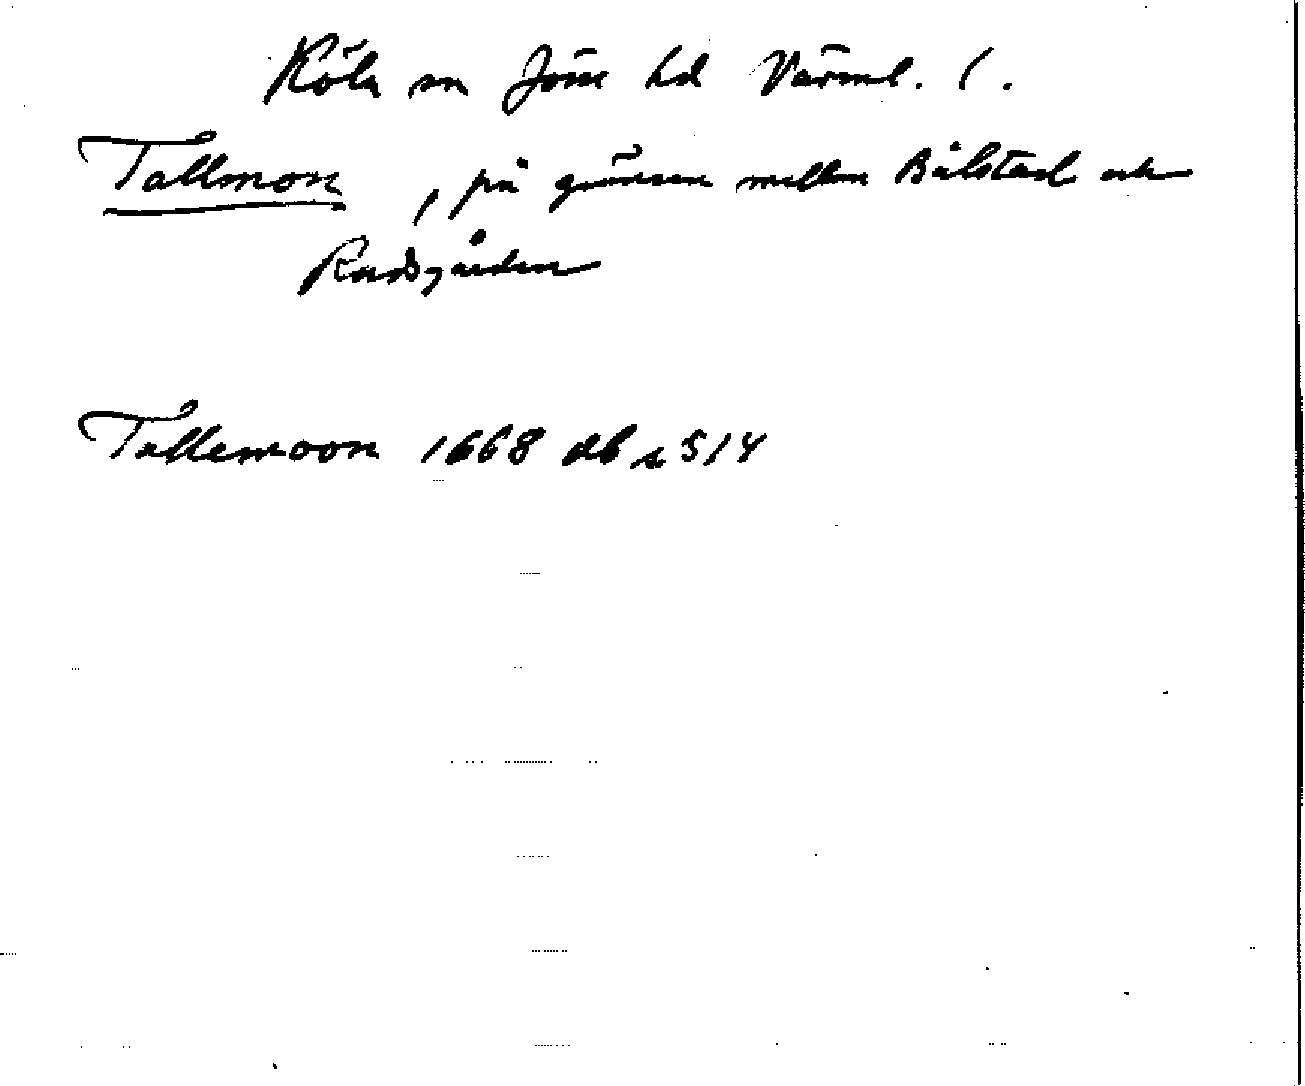 Köla sn Jösse hd Värml. l.
Tallmon, på gränsen mellan Bålstad och
Tallemoon 1668 db s 514